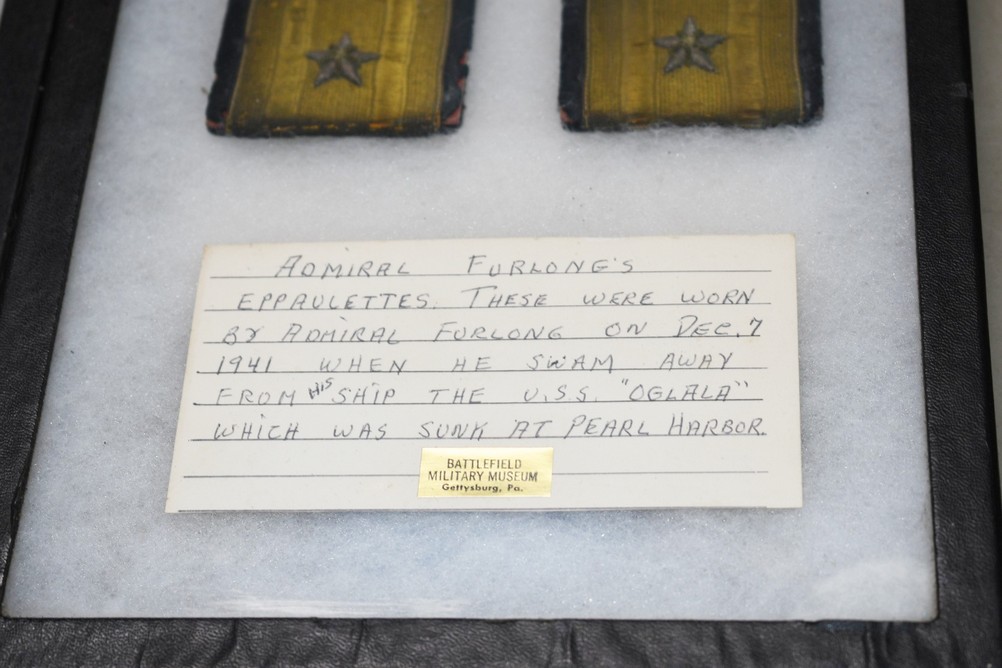 ADMIRAL FURLONG'S
EPPAULETTES. THESE WERE WORN
BY ADMIRAL FURLONG ON DEC. 7
1941 WHEN HE SWAM AWAY
FROM HIS SHIP THE U.S.S. "OGLALA"
WHICH WAS SUNK AT PEARL HARBOR.
BATTLEFIELD
MILITARY MUSEUM
Gettysburg, Pa.